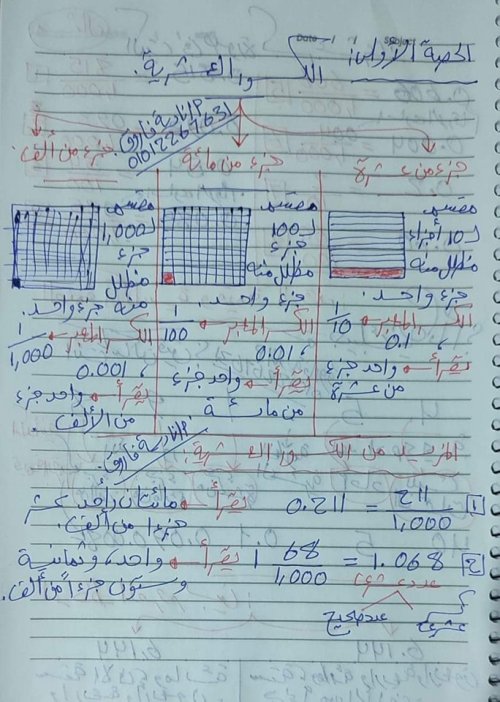 Date / / Subject
الحصة الأولى:
الكسور العشرية.
م/نادية فاروق
01012267631
جزء من عشرة
جزء من مائة
جزء من ألف
مقسم لـ 10 أجزاء مظلل منه
جزء واحد.
الكسر المعبر 1/10
، 0.1
تقرأ واحد جزء
من عشرة
مقسم لـ 100 جزء مظلل منه
جزء واحد.
الكسر المعبر 1/100
، 0.01
تقرأ واحد جزء
من مائة
مقسم لـ 1,000 جزء مظلل
منه جزء واحد.
الكسر المعبر 1/1,000
، 0.001
تقرأ واحد جزء
من الألف.
م/نادية فاروق
المزيد من الكسور العشرية:
1 211/1,000 = 0.211 تقرأ مائتان وأحد عشر
جزءا من ألف.
2 1.068 = 1 68/1,000 تقرأ واحد، وثمانية
وستون جزءاً من ألف.
عدد عشري
عدد صحيح
عشري
6.144
6.144